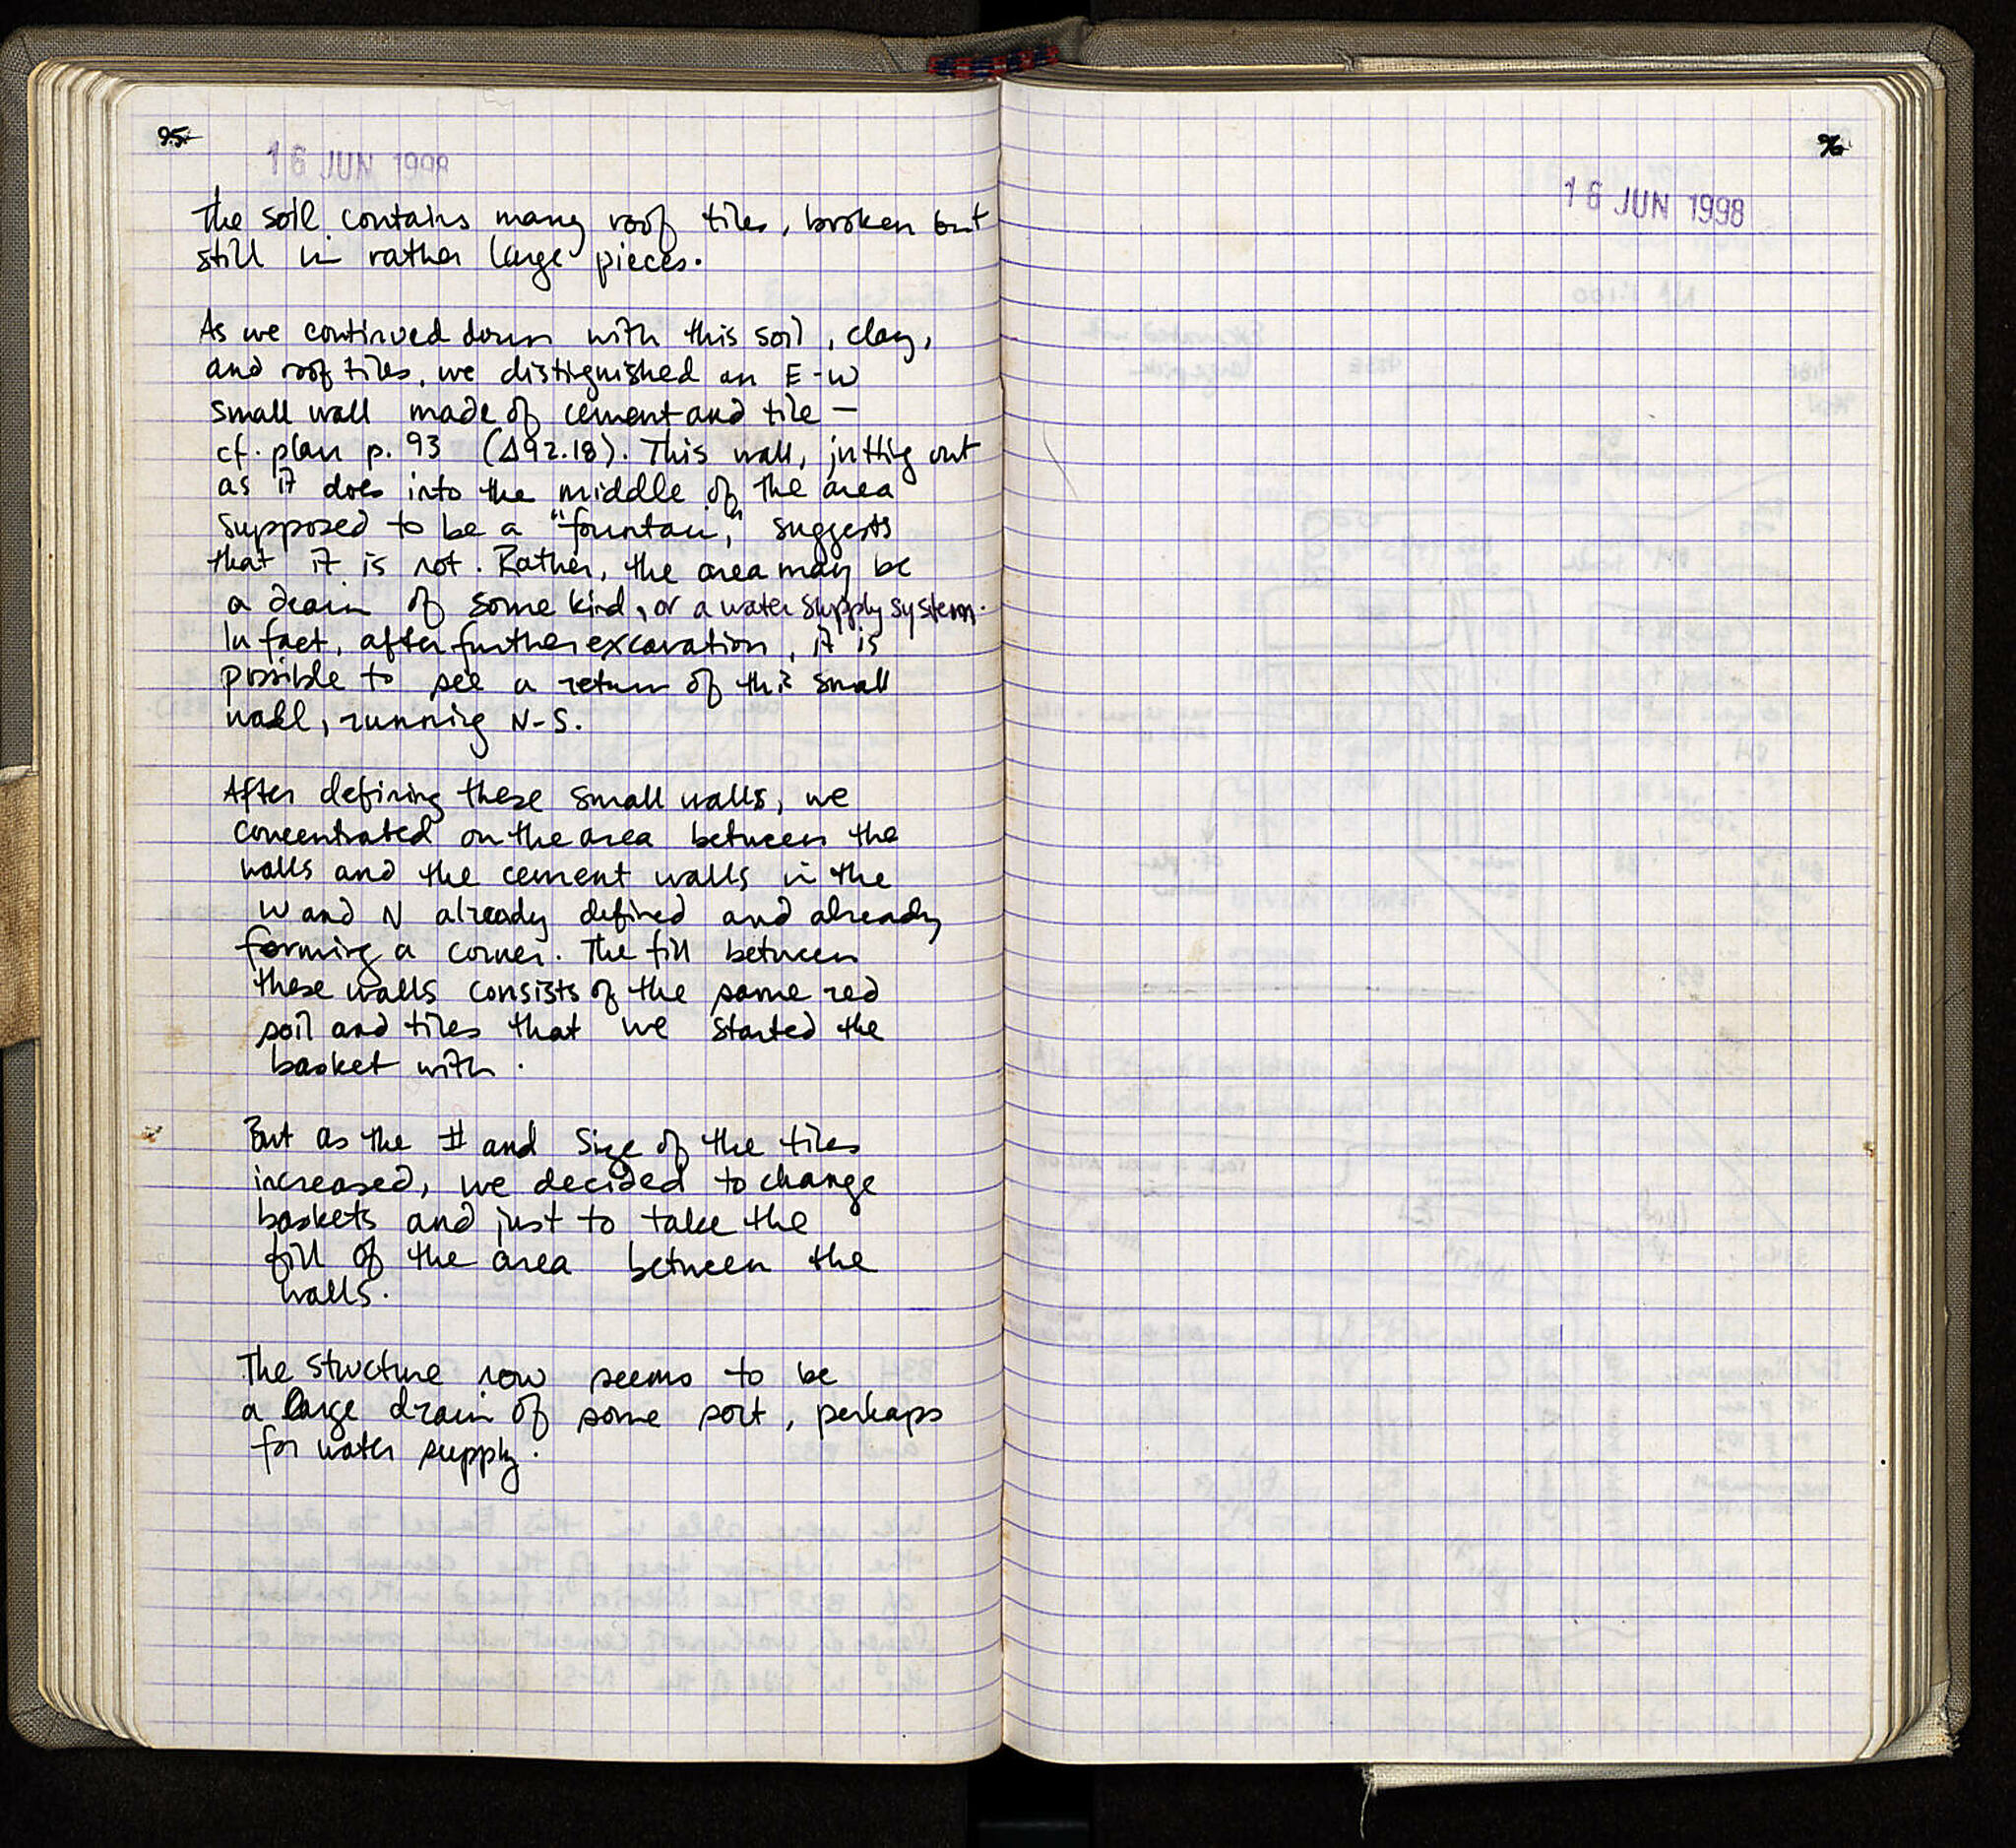 95
16 JUN 1998
The soil contains many roof tiles, broken but
still in rather large pieces.
As we continued down with this soil, clay,
and roof tiles, we distinguished an E-W
small wall made of cement and tile —
cf. plan p. 93 (Δ92.18). This wall, jutting out
as it does into the middle of the area
supposed to be a "fountain," suggests
that it is not. Rather, the area may be
a drain of some kind, or a water supply system.
In fact, after further excavation, it is
possible to see a return of this small
wall, running N-S.
After defining these small walls, we
concentrated on the area between the
walls and the cement walls in the
W and N already defined and already
forming a corner. The fill between
these walls consists of the same red
soil and tiles that we started the
basket with.
But as the # and size of the tiles
increased, we decided to change
baskets and just to take the
fill of the area between the
walls.
The structure now seems to be
a large drain of some sort, perhaps
for water supply.
96
16 JUN 1998